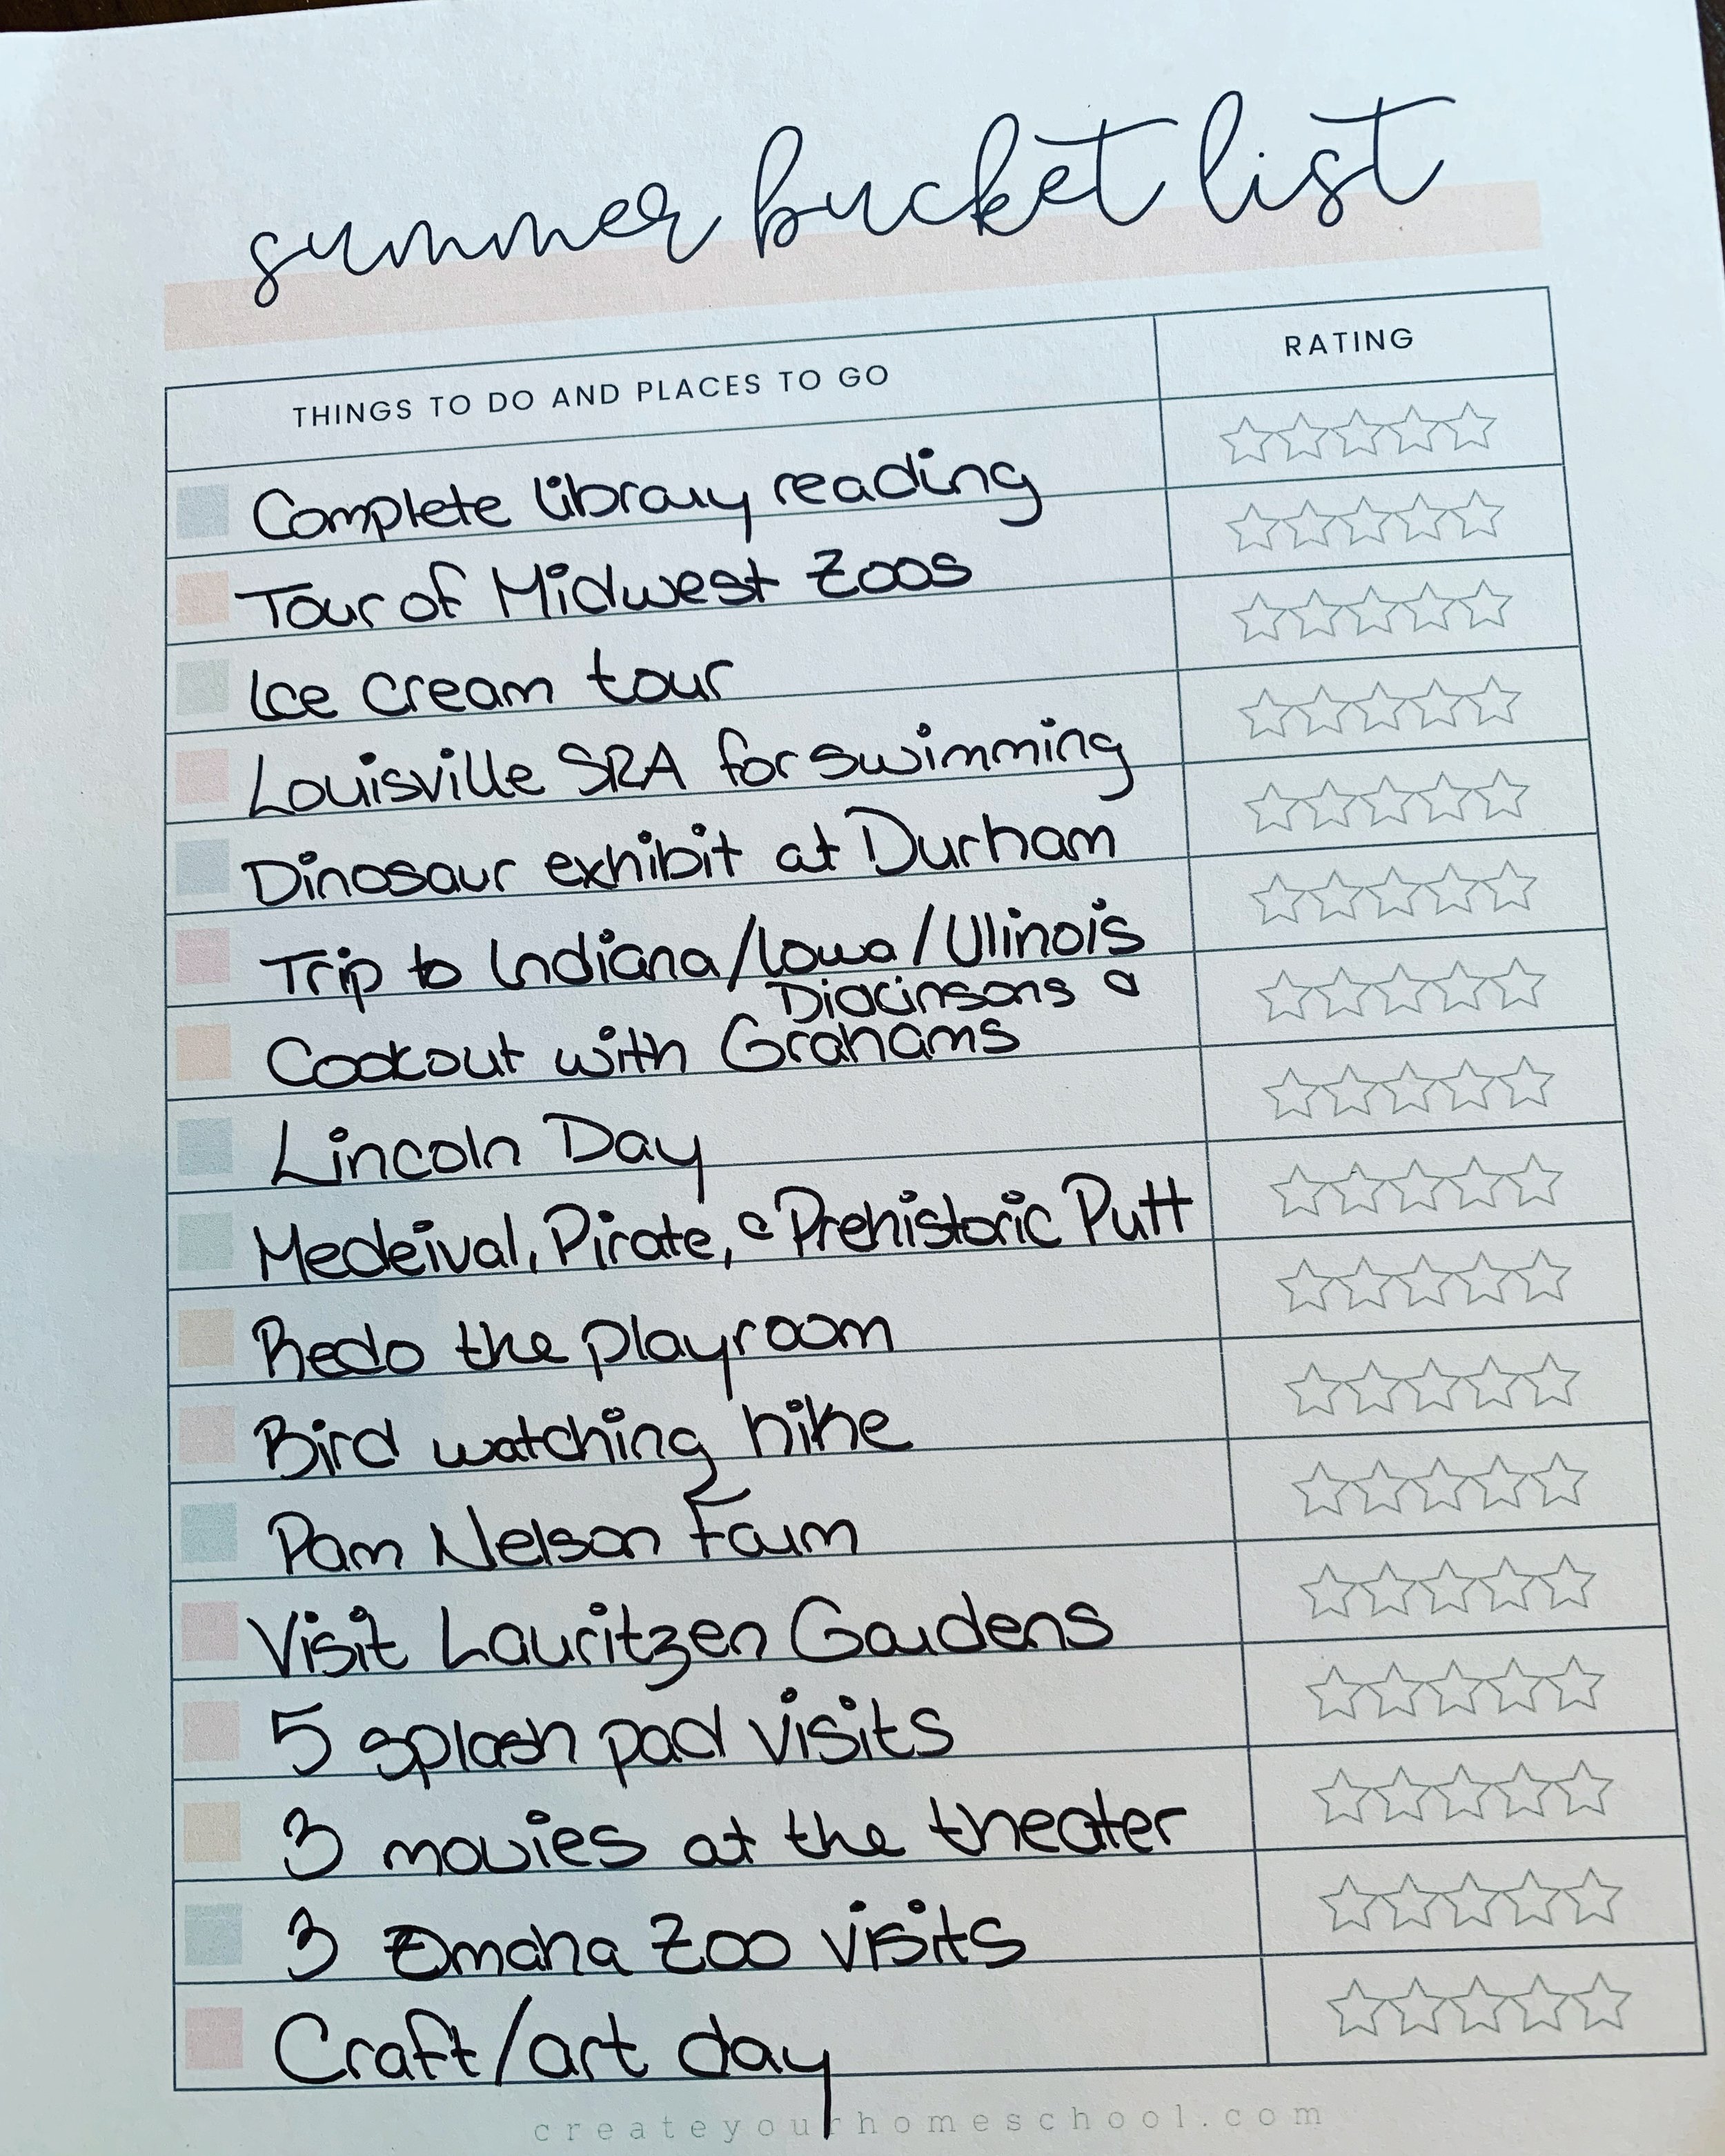 summer bucket list
THINGS TO DO AND PLACES TO GO
RATING
Complete library reading
Tour of Midwest Zoos
Ice cream tour
Louisville SRA for swimming
Dinosaur exhibit at Durham
Trip to Indiana/Iowa/Illinois
Dickinsons &
Cookout with Grahams
Lincoln Day
Medeival, Pirate, & Prehistoric Putt
Redo the playroom
Bird watching hike
Pam Nelson Farm
Visit Lauritzen Gardens
5 splash pad visits
3 movies at the theater
3 Omaha Zoo visits
Craft/art day
createyourhomeschool.com